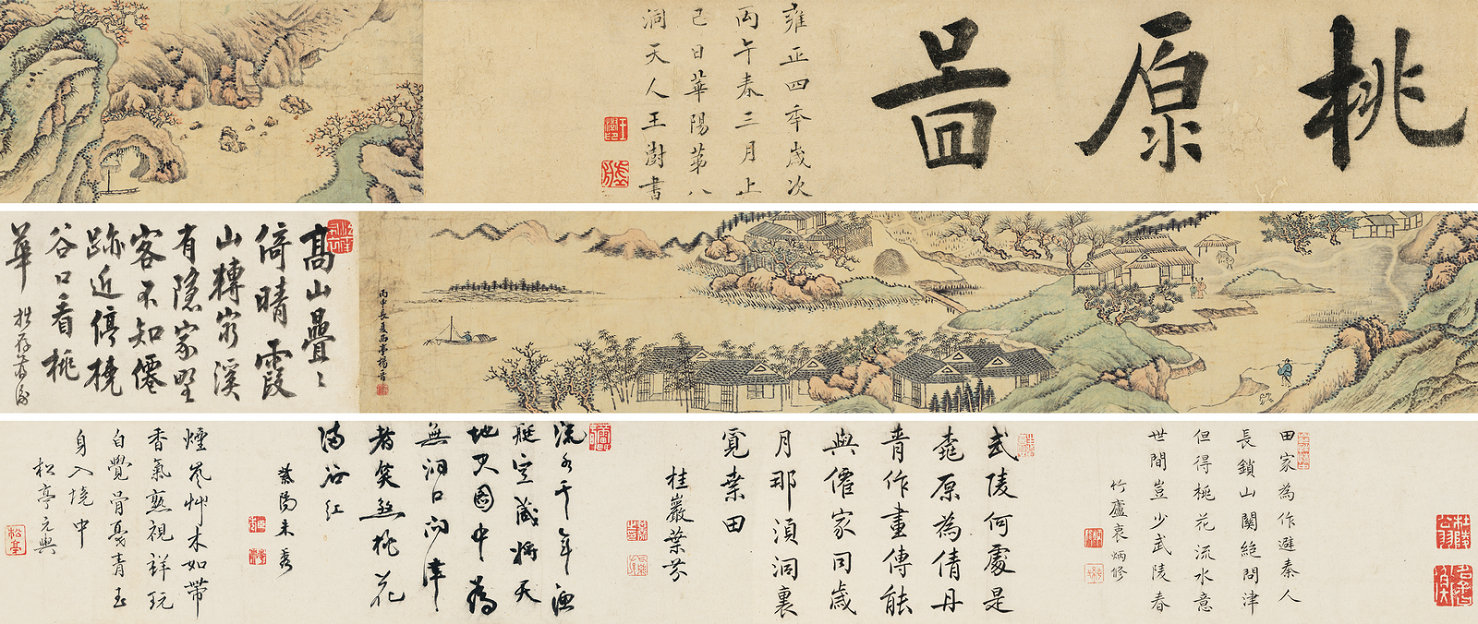 桃原啚
雍正四年歲次
丙午春三月上
己日華陽第八
洞天人王澍書
丙申長夏西亭楊晉
高山疊〻
倚晴霞
山轉窮溪
有隱家野
客不知僊
跡近停橈
谷口看桃
華
田家為作避秦人
長鎖山關絕問津
但得桃花流水意
世間豈少武陵春
竹廬袁炳修
武陵何處是
桃原為倩丹
青作畫傳能
與僊家同歲
月那須洞裏
覓桑田
桂巖葉芬
流水千年漁
艇空藏將天
地入圖中為
無洞口問津〻
者笑煞桃花
滿谷紅
紫陽朱秀
煙嵐艸木如帶
香氣熟視詳玩
自覺骨戛青玉
身入境中
松亭元興
松亭